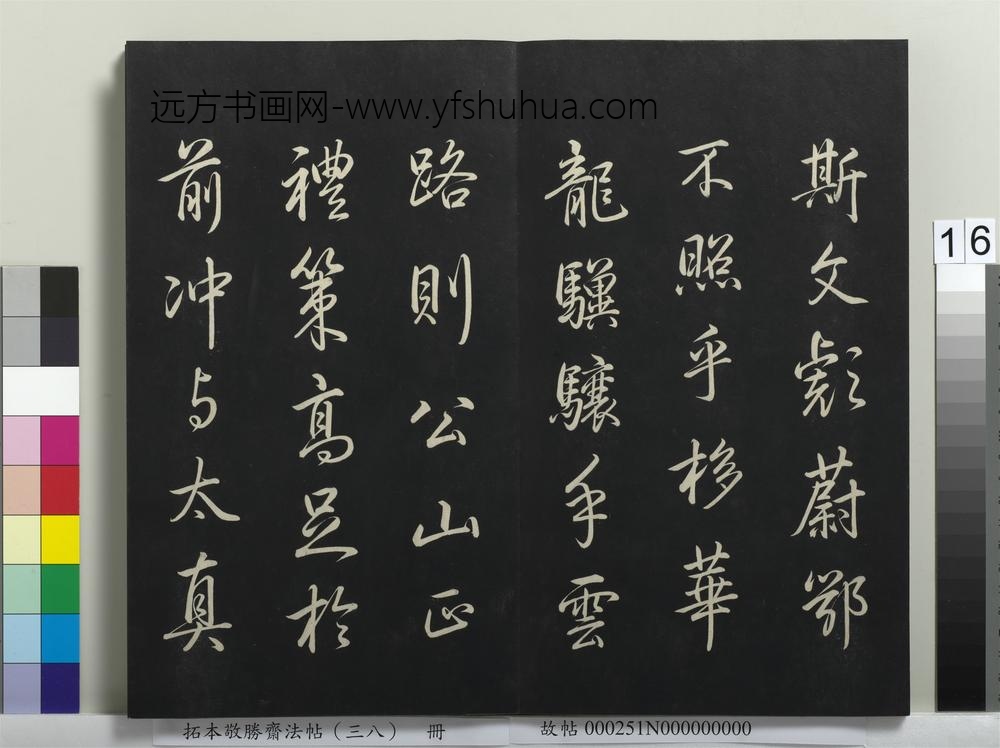 远方书画网-www.yfshuhua.com
斯文彪蔚鄂
不照乎移華
龍驥驤乎雲
路則公山正
禮策高足於
前冲与太真
16
拓本敬勝齋法帖（三八） 冊
故帖 000251N000000000